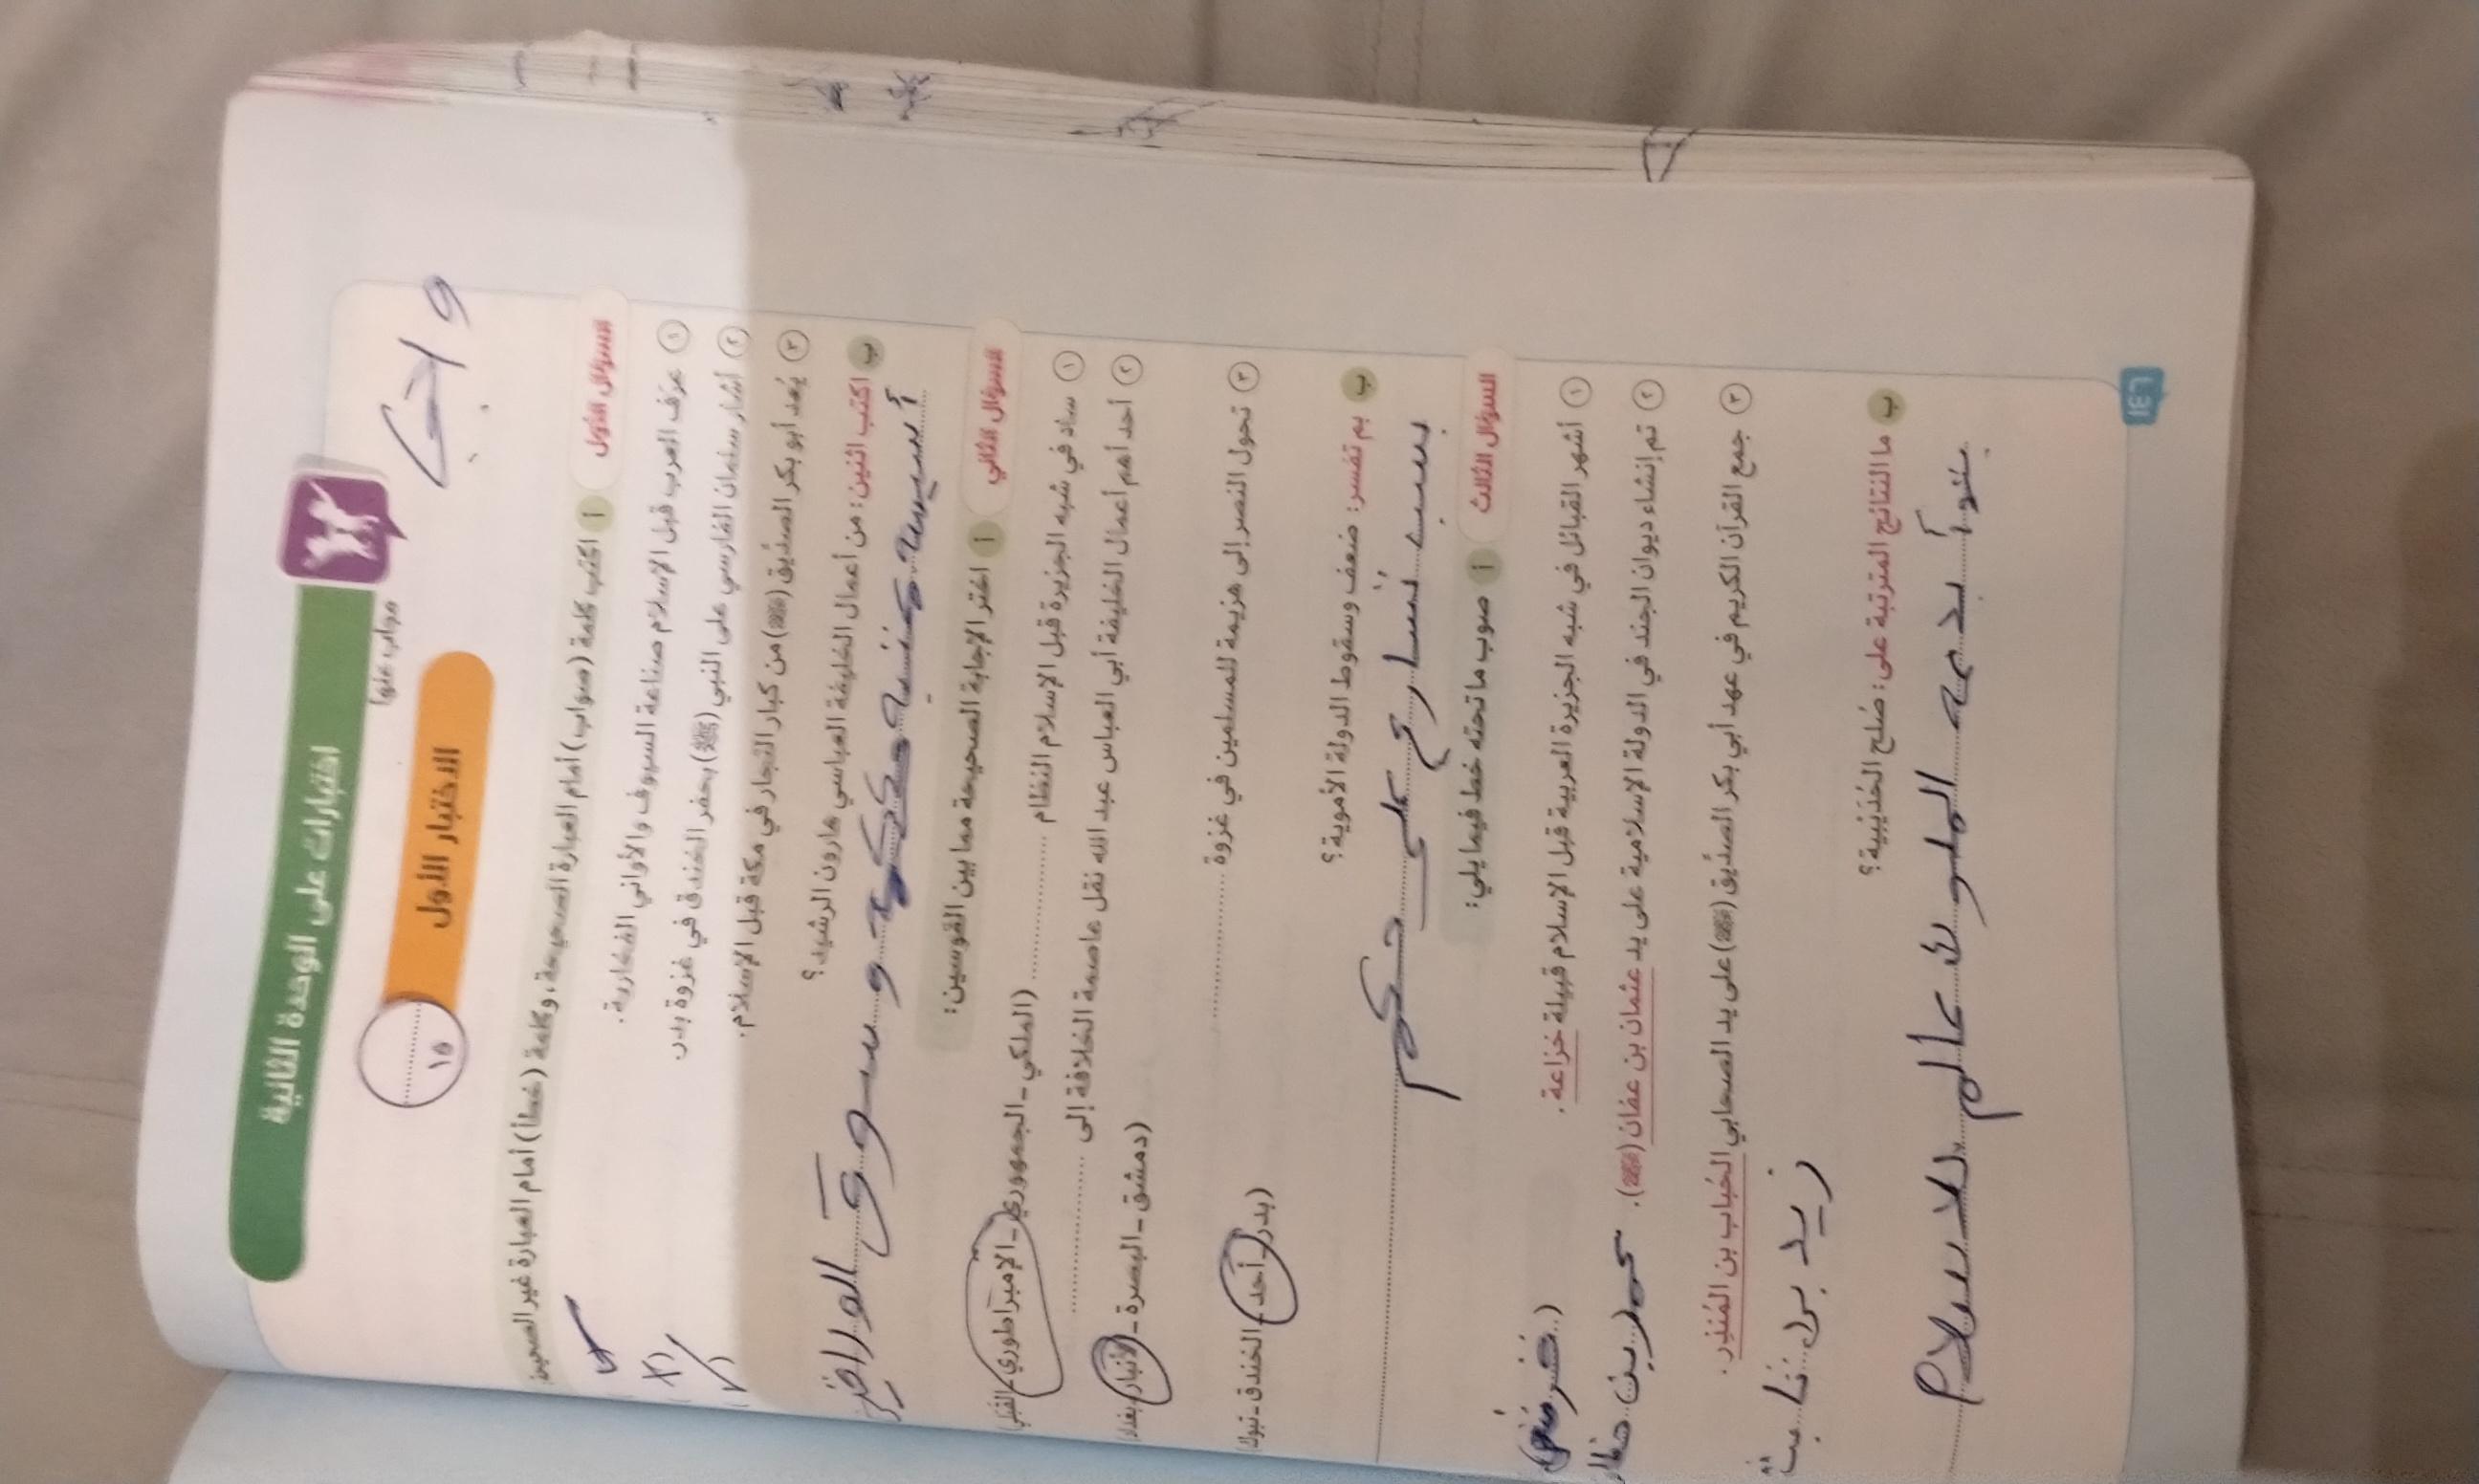 اختبارات على الوحدة الثانية
مجاب عنها
الاختبار الأول
١٥
السؤال الأول
أ اكتب كلمة (صواب) أمام العبارة الصحيحة، وكلمة (خطأ) أمام العبارة غير الصحيحة:
١ عرف العرب قبل الإسلام صناعة السيوف والأواني الفخارية.
٢ أشار سلمان الفارسي على النبي (ﷺ) بحفر الخندق في غزوة بدر.
٣ يُعد أبو بكر الصدِّيق (رضي الله عنه) من كبار التجار في مكة قبل الإسلام.
ب اكتب اثنين: من أعمال الخليفة العباسي هارون الرشيد؟
السؤال الثاني
أ اختر الإجابة الصحيحة مما بين القوسين:
١ ساد في شبه الجزيرة قبل الإسلام النظام .......... (الملكي - الجمهوري - الإمبراطوري - القبلي)
٢ أحد أهم أعمال الخليفة أبي العباس عبد الله نقل عاصمة الخلافة إلى ..........
(دمشق - البصرة - الأنبار - بغداد)
٣ تحول النصر إلى هزيمة للمسلمين في غزوة ..........
(بدر - أحد - الخندق - تبوك)
ب بم تفسر: ضعف وسقوط الدولة الأموية؟
بسبب
حكم
السؤال الثالث
أ صوب ما تحته خط فيما يلي:
١ أشهر القبائل في شبه الجزيرة العربية قبل الإسلام قبيلة خزاعة.
٢ تم إنشاء ديوان الجند في الدولة الإسلامية على يد عثمان بن عفان (رضي الله عنه).
٣ جمع القرآن الكريم في عهد أبي بكر الصدِّيق (رضي الله عنه) على يد الصحابي الحُباب بن المُنذِر.
زيد بن ثابت
ب ما النتائج المترتبة على: صُلح الحُدَيْبِية؟
١٤٦